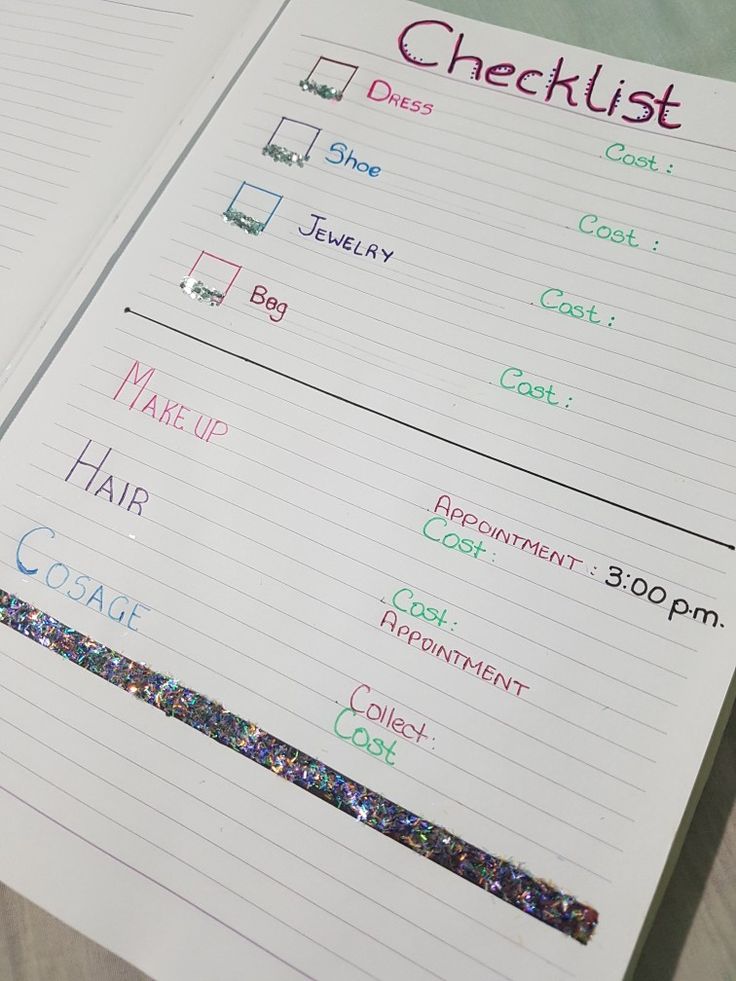 Checklist
Dress
Cost :
Shoe
Cost :
Jewelry
Cost :
Bag
Cost :
Make up
Appointment : 3:00 p.m.
Cost :
Hair
Cost :
Appointment
Cosage
Collect :
Cost